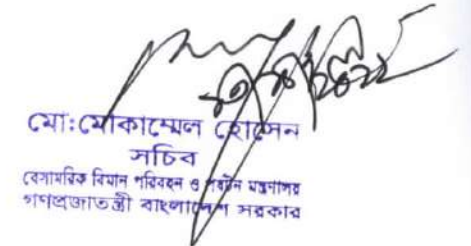 মো:মোকাম্মেল হোসেন
সচিব
বেসামরিক বিমান পরিবহন ও পর্যটন মন্ত্রণালয়
গণপ্রজাতন্ত্রী বাংলাদেশ সরকার